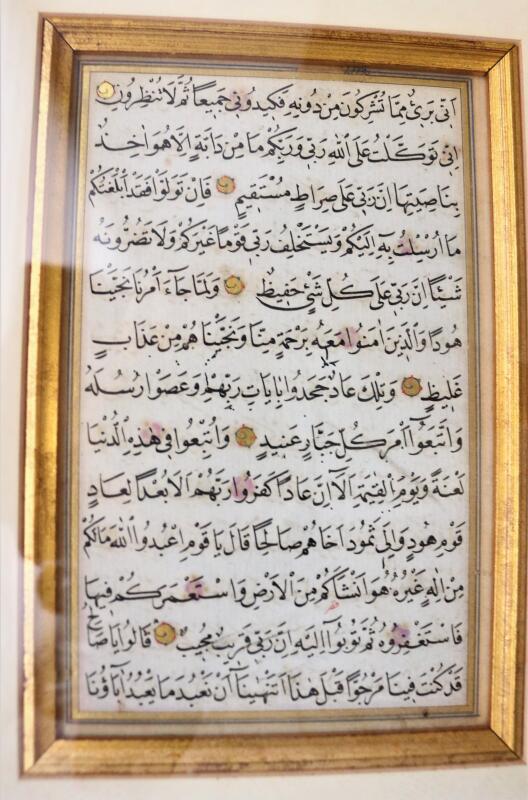 اَنّى بَرئٌ مِمَّا تُشْرِكُونَ مِنْ دُونِهِ فَكِيدُونى جَمِيعًا ثُمَّ لَا تُنْظِرُونِ
اِنّى تَوَكَّلْتُ عَلَى اللّٰهِ رَبّى وَرَبِّكُمْ مَا مِنْ دَابَّةٍ اِلَّا هُوَ اٰخِذٌ
بِنَاصِيَتِهَا اِنَّ رَبّى عَلَى صِرَاطٍ مُسْتَقِيمٍ فَاِنْ تَوَلَّوْا فَقَدْ اَبْلَغْتُكُمْ
مَا اُرْسِلْتُ بِهِ اِلَيْكُمْ وَيَسْتَخْلِفُ رَبّى قَوْمًا غَيْرَكُمْ وَلَا تَضُرُّونَهُ
شَيْئًا اِنَّ رَبّى عَلَى كُلِّ شَىْءٍ حَفِيظٌ وَلَمَّا جَاءَ اَمْرُنَا نَجَّيْنَا
هُودًا وَالَّذِينَ اٰمَنُوا مَعَهُ بِرَحْمَةٍ مِنَّا وَنَجَّيْنَاهُمْ مِنْ عَذَابٍ
غَلِيظٍ وَتِلْكَ عَادٌ جَحَدُوا بِاٰيَاتِ رَبِّهِمْ وَعَصَوْا رُسُلَهُ
وَاتَّبَعُوا اَمْرَ كُلِّ جَبَّارٍ عَنِيدٍ وَاُتْبِعُوا فى هٰذِهِ الدُّنْيَا
لَعْنَةً وَيَوْمَ الْقِيٰمَةِ اَلَا اِنَّ عَادًا كَفَرُوا رَبَّهُمْ اَلَا بُعْدًا لِعَادٍ
قَوْمِ هُودٍ وَاِلَى ثَمُودَ اَخَاهُمْ صَالِحًا قَالَ يَا قَوْمِ اعْبُدُوا اللّٰهَ مَا لَكُمْ
مِنْ اِلٰهٍ غَيْرُهُ هُوَ اَنْشَاَكُمْ مِنَ الْاَرْضِ وَاسْتَعْمَرَكُمْ فِيهَا
فَاسْتَغْفِرُوهُ ثُمَّ تُوبُوا اِلَيْهِ اِنَّ رَبّى قَرِيبٌ مُجِيبٌ قَالُوا يَا صَالِحُ
قَدْ كُنْتَ فِينَا مَرْجُوًّا قَبْلَ هٰذَا اَتَنْهٰينَا اَنْ نَعْبُدَ مَا يَعْبُدُ اٰبَاؤُنَا